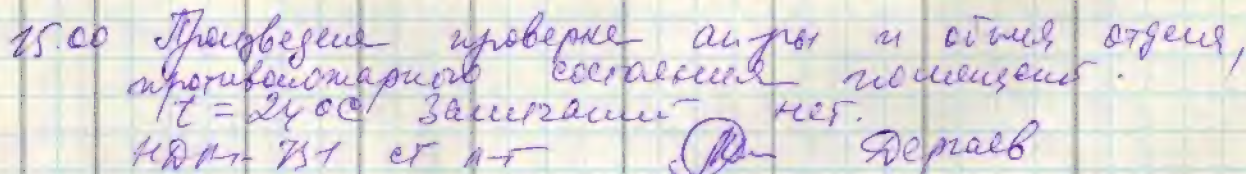 15.00 Произведена проверка ап-ры и отделения отдела,
противопожарного состояния помещений.
t = 24 °C Замечаний нет.
НДМ- 731 ст л-т Дергаев